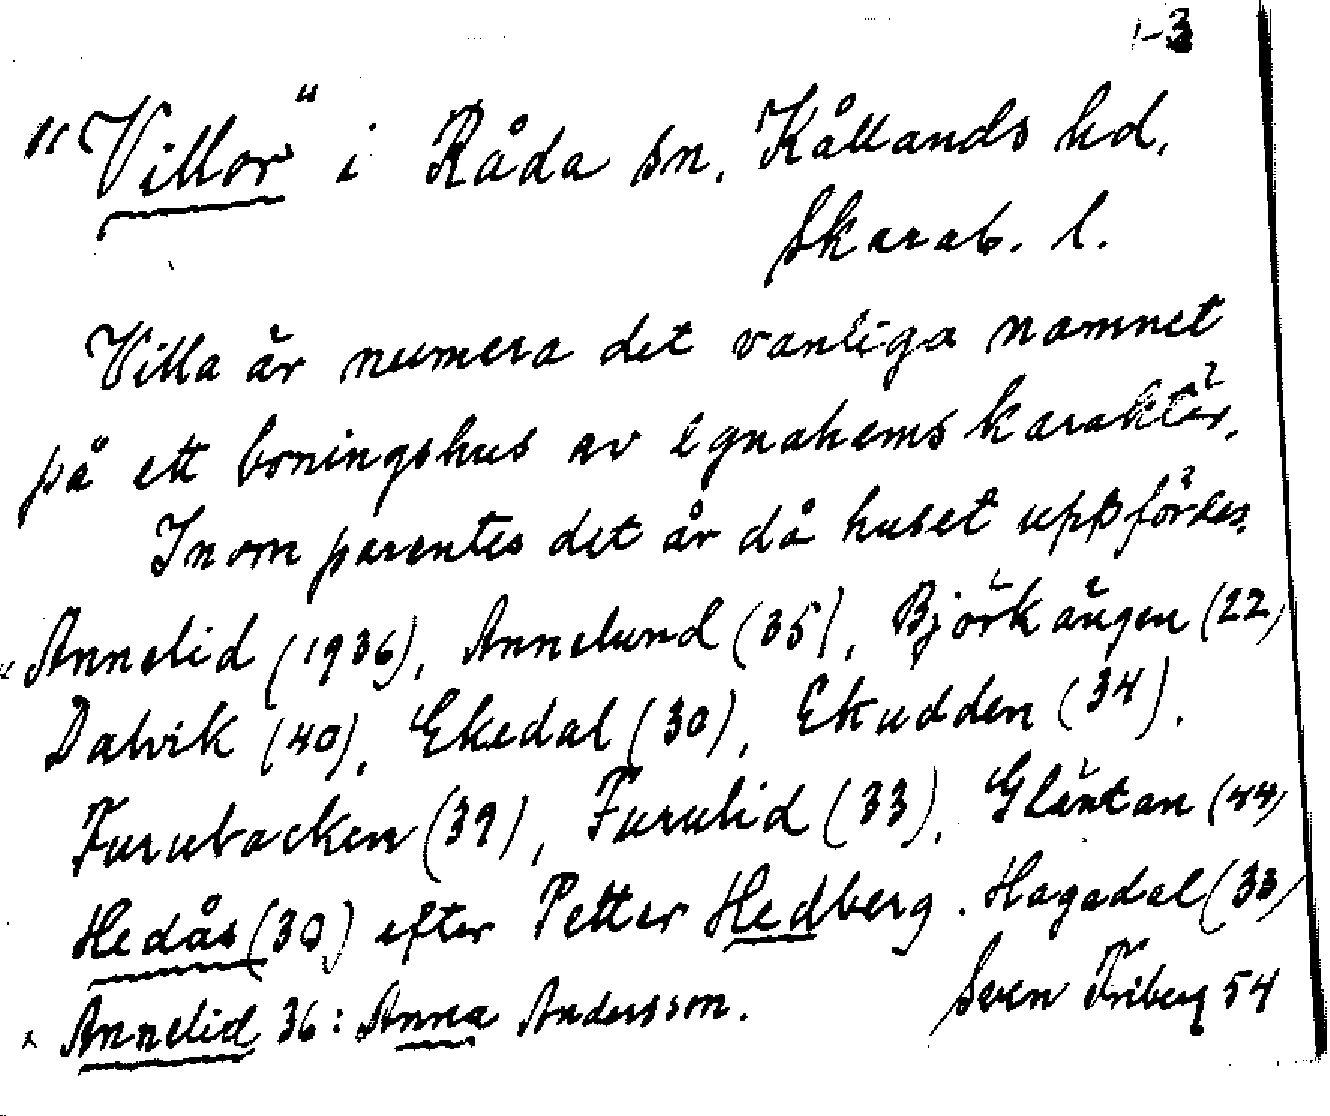 1-3
"Villor" i Råda sn, Kållands hd,
Skarab. l.
Villa är numera det vanliga namnet
på ett boningshus av egnahems karaktär.
Inom parentes det år då huset uppfördes.
Annelid (1936), Annelund (35), Björkängen (22)
Dalvik (40), Ekedal (30), Ekudden (34).
Furubacken (39), Furulid (33), Gläntan (44)
Hedås (30) efter Petter Hedberg. Hagadal (33)
Annelid 36: Anna Andersson. Sven Friberg 54